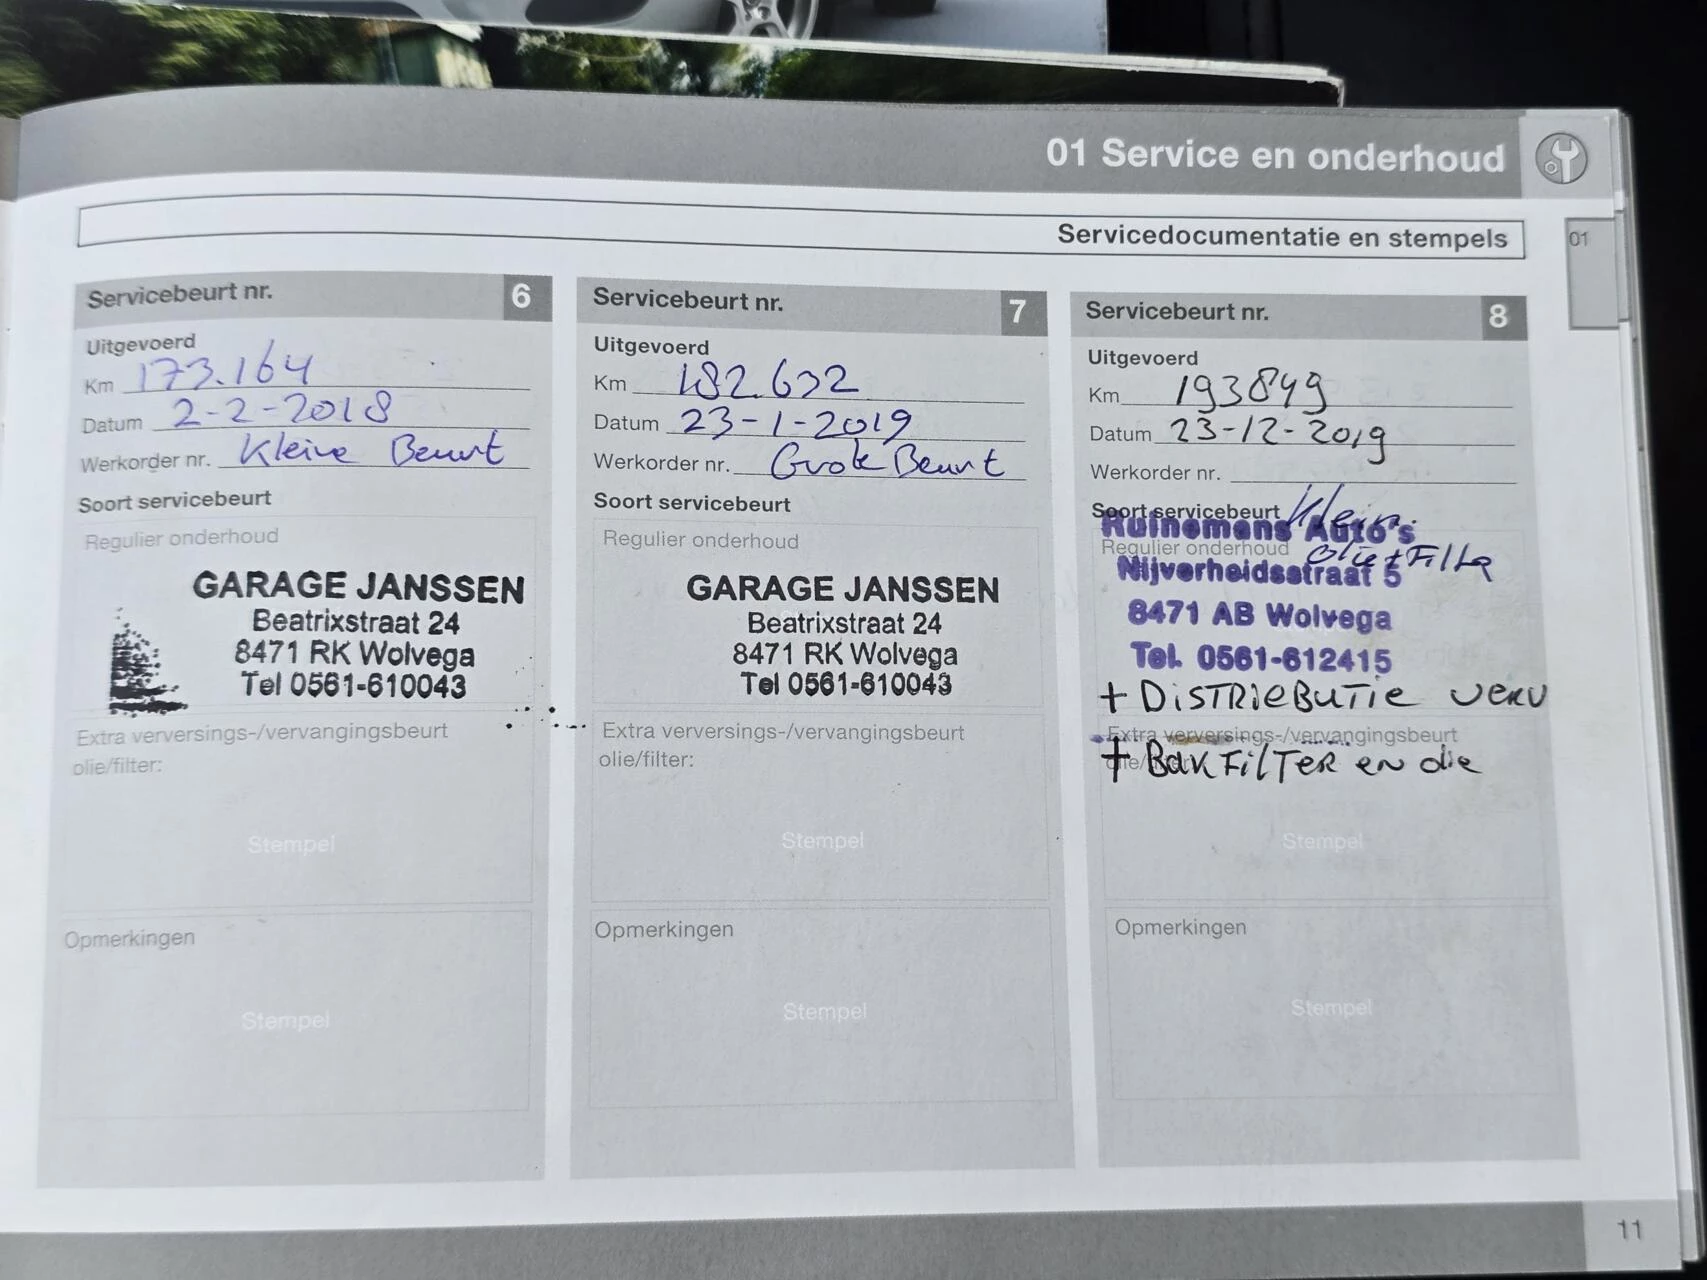 01 Service en onderhoud
Servicedocumentatie en stempels
01
Servicebeurt nr. 6
Uitgevoerd
Km 173.164
Datum 2-2-2018
Werkorder nr. Kleine Beurt
Soort servicebeurt
Regulier onderhoud
GARAGE JANSSEN
Beatrixstraat 24
8471 RK Wolvega
Tel 0561-610043
Extra verversings-/vervangingsbeurt
olie/filter:
Stempel
Opmerkingen
Stempel
Servicebeurt nr. 7
Uitgevoerd
Km 182.632
Datum 23-1-2019
Werkorder nr. Grote Beurt
Soort servicebeurt
Regulier onderhoud
GARAGE JANSSEN
Beatrixstraat 24
8471 RK Wolvega
Tel 0561-610043
Extra verversings-/vervangingsbeurt
olie/filter:
Stempel
Opmerkingen
Stempel
Servicebeurt nr. 8
Uitgevoerd
Km 193849
Datum 23-12-2019
Werkorder nr.
Soort servicebeurt Klein
Ruinemans Auto's
Regulier onderhoud olie+Filter
Nijverheidsstraat 5
8471 AB Wolvega
Tel. 0561-612415
+ DISTRIEBUTIE VERV
Extra verversings-/vervangingsbeurt
+ BAKFILTER en olie
Stempel
Opmerkingen
Stempel
11